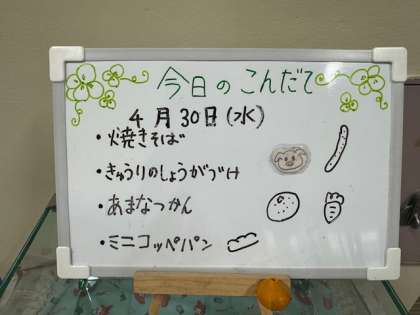 今日のこんだて
4月30日(水)
・焼きそば
・きゅうりのしょうがづけ
・あまなつかん
・ミニコッペパン